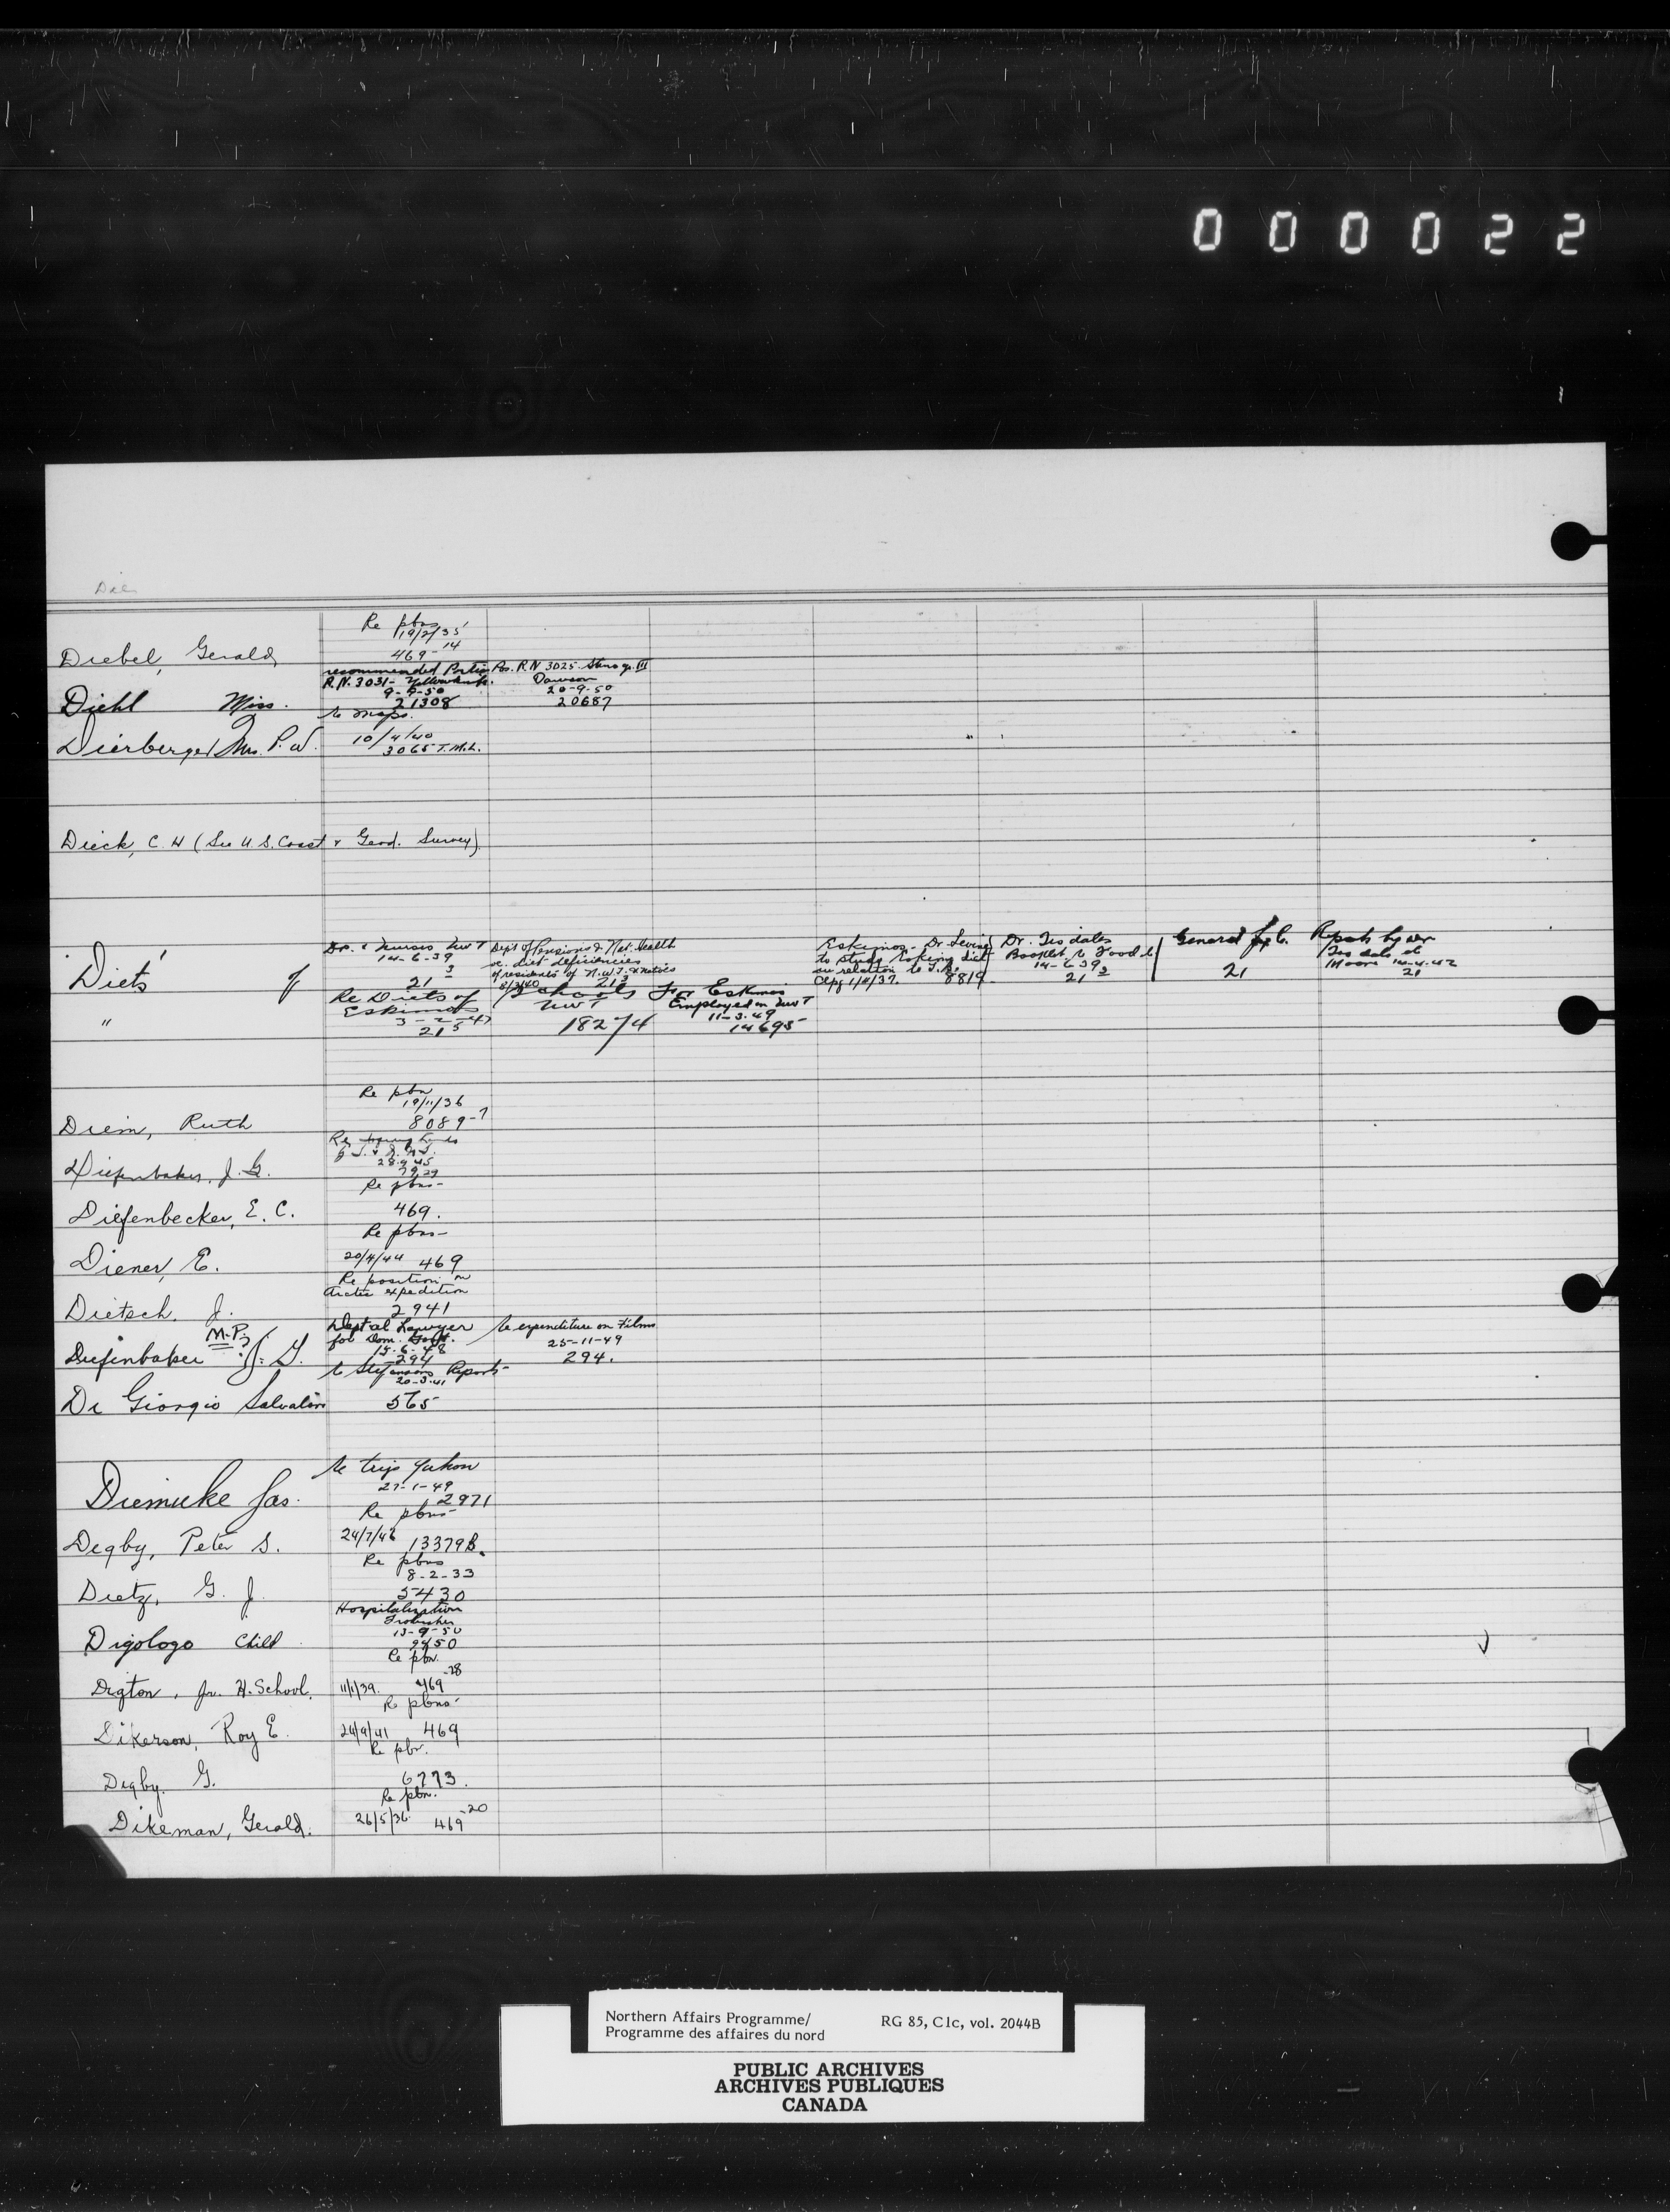 000022
Die
Re pbns
19/2/35
Diebel, Gerald
469-14
recommended Position
Pos. R.N 3025. Steno gr. III
R.N. 3031- Yellowknife.
Dawson
9-9-50
20-9-50
Diehl Miss.
21308
20687
Re maps.
Dierberger Mrs. P. W.
10/4/40
3065 T.M.L.
Dieck, C. H (See U.S. Coast & Geod. Survey)
Diets of
Drs. & Nurses NWT
14-6-39
21 3
Dept of Pensions & Nat. Health
re. diet deficiencies
of residents of N.W.T. & Natives
8/3/40 21 3
Eskimos - Dr Levine
to study Eskimo diet
in relation to T.B.
Clpg 1/11/37. 8819.
Dr. Tisdales
Booklet re Food
14-6-39
21 3
General
21
Reports by Dr
Tisdale &
Moore 14-4-42
21
"
Re Diets of
Eskimos
3-2-47
21 5
Schools
NWT
18274
For Eskimos
Employed in NWT
11-3-49
14695
Re pbn
19/11/36
Diem, Ruth
8089-7
Re
28-9-45
Diefenbaker, J. G.
7929
Re pbns-
Diefenbecker, E. C.
469.
Re pbns-
Diener, E.
20/4/44 469
Re position on
Arctic expedition
Dietsch. J.
2941
Dept al Lawyer
Re expenditure on Films
for Dom. Govt.
25-11-49
M.P.
15-6-48
Diefenbaker J. G.
294
294.
Re Stefansson Reports-
20-3-41
Di Giorgio Salvatore
565
Re trip Yukon
27-1-49
Diemuke Jas.
2971
Re pbns-
Digby, Peter S.
24/7/46 13379B.
Re pbns
8-2-33
Dietz, G. J.
5430
Hospitalization
Frobisher
13-9-50
Digologo Child
9450
Re pbn.
Digton, Jr. H. School.
11/1/39. 469-28
Re pbns-
Dikerson, Roy E.
24/9/41 469
Re pbn.
Digby. G.
6773.
Re pbn.
Dikeman, Gerald.
26/5/36. 469-20
Northern Affairs Programme/
Programme des affaires du nord
RG 85, C1c, vol. 2044B
PUBLIC ARCHIVES
ARCHIVES PUBLIQUES
CANADA